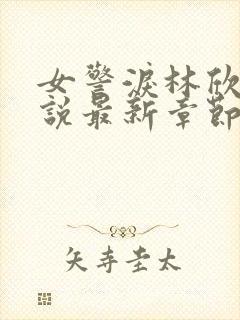 女警淚林欣
說最新章節
矢寺圭太